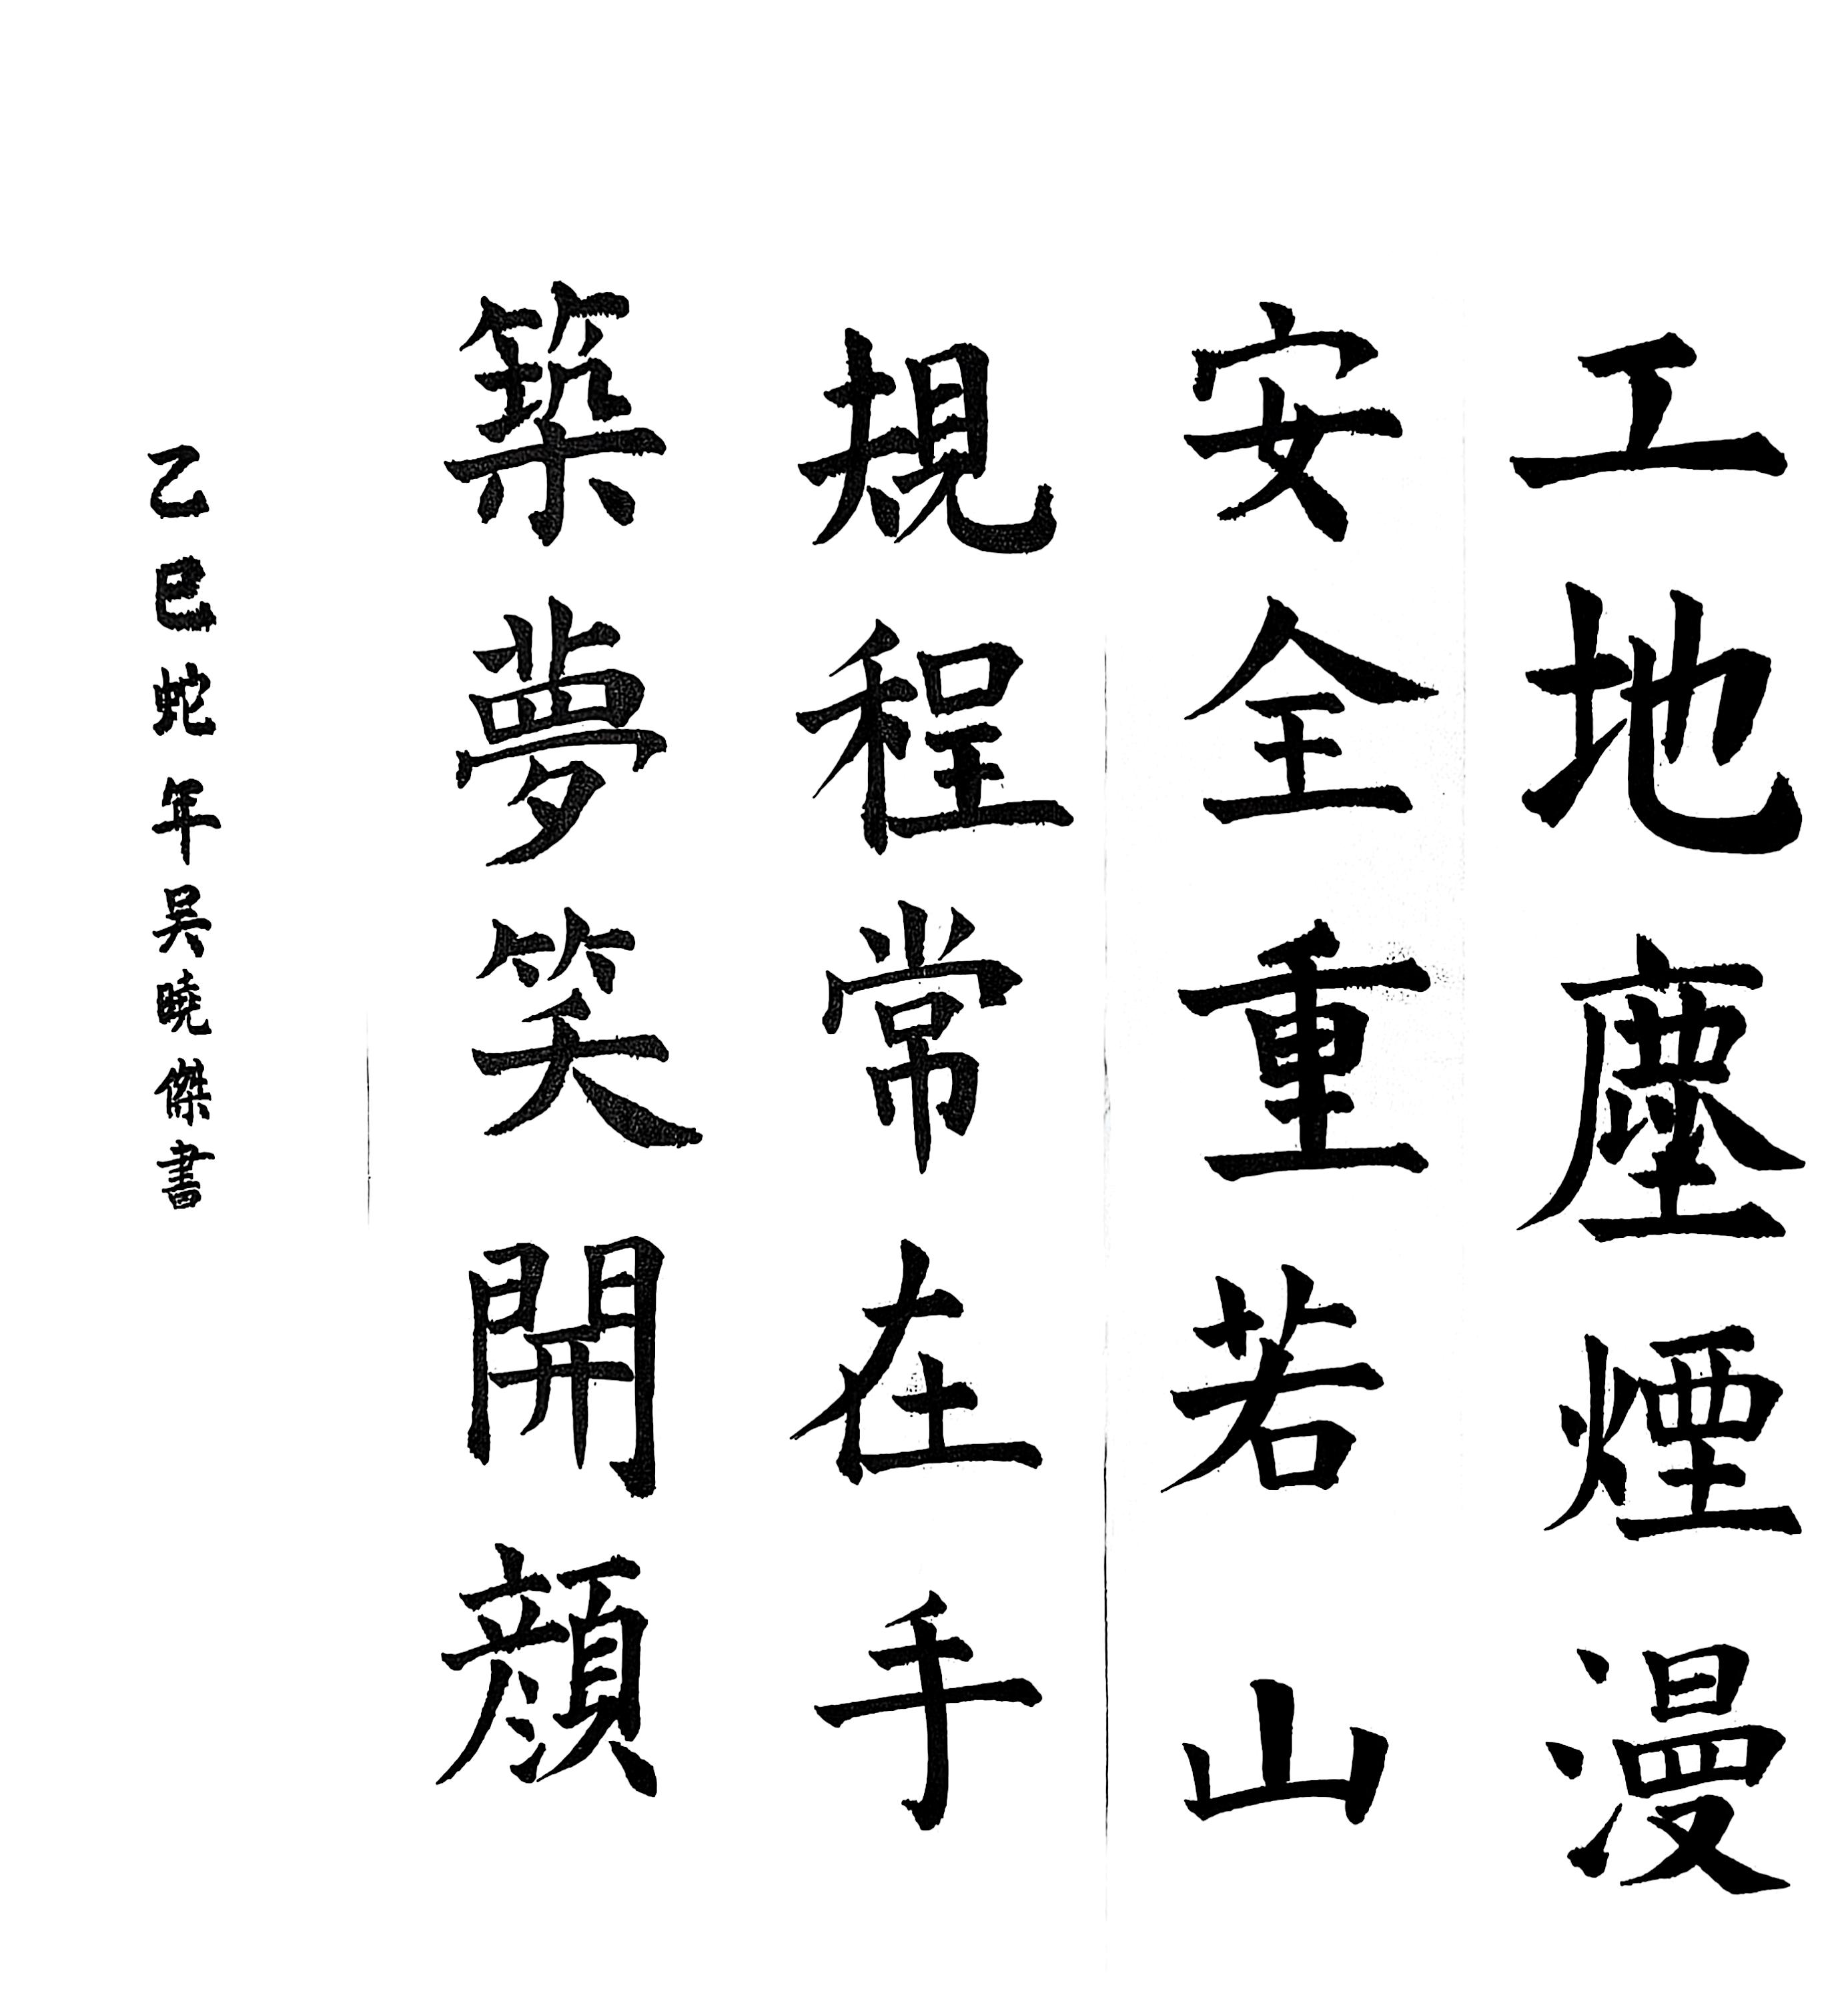 工地塵煙漫
安全重若山
規程常在手
築夢笑開顔
乙巳蛇年吴曉傑書